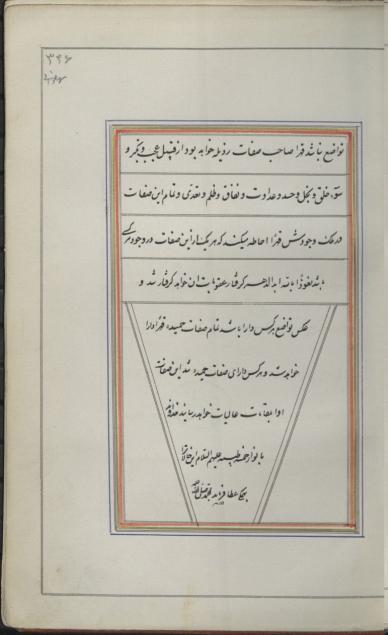 ۳۴۶
تواضع نباشد قهرا صاحب صفات رذیله خواهد بود از قبیل عجب و تکبر و
سوء خلق و بخل و حسد و عداوت و نفاق و ظلم و تعدی و تمام این صفات
وجودش قهرا احاطه میکند که هر یک از این صفات در وجود هر کس
باشد نعوذا بالله ابد الدهر گرفتار عقوبات ان خواهد گرفتار شد و
عکس تواضع هر کس دارا باشد تمام صفات حمیده قهرا دارا
خواهد شد و هر کس دارای صفات حمیده شد این صفات
او را بمقامات عالیات خواهد رسانید خداوند
بانوار خمسه طیبه علیهم السلام این
بهمگی عطا فرماید بمحمد